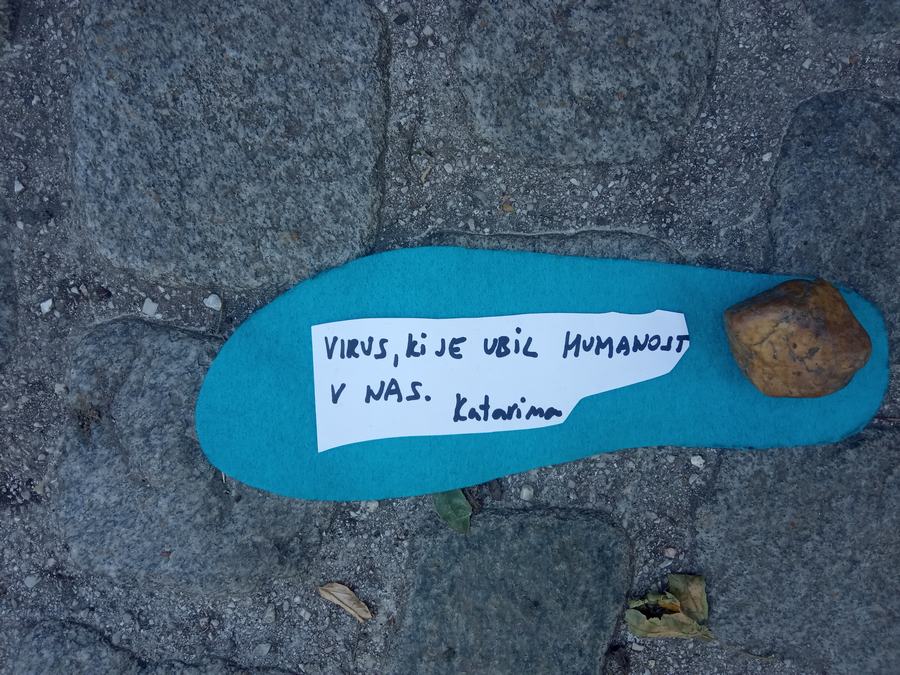 VIRUS, Ki JE UBIL HUMANOST
V NAS.
Katarina